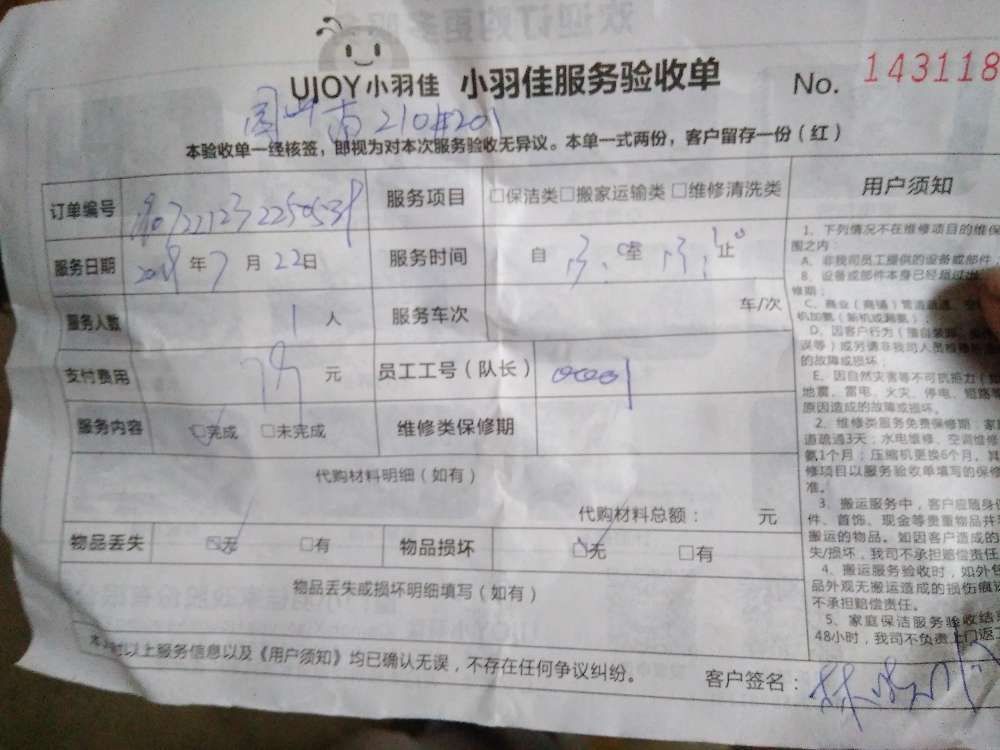 UJOY小羽佳 小羽佳服务验收单 No. 143118
210 201
本验收单一经核签，即视为对本次服务验收无异议。本单一式两份，客户留存一份（红）
订单编号
服务项目 □保洁类□搬家运输类□维修清洗类
服务日期 2019年7月22日
服务时间 自 至 止
服务人数 1人
服务车次 车/次
支付费用 元
员工工号（队长）
服务内容 □完成 □未完成
维修类保修期
代购材料明细（如有）
代购材料总额： 元
物品丢失 □无 □有
物品损坏 □无 □有
物品丢失或损坏明细填写（如有）
以上服务信息以及《用户须知》均已确认无误，不存在任何争议纠纷。
客户签名：
用户须知
1、下列情况不在维修项目的维保
围之内：
A、非我司员工提供的设备或部件
B、设备或部件本身已经超过
修期；
C、商业（商铺）管道疏通、
D、因客户行为
误等）或另请非我司人员维修
的故障或损坏；
E、因自然灾害等不可抗拒力
地震、雷电、火灾、停电、短路
原因造成的故障或损坏。
2、维修类服务免费保修期：家
道疏通3天；水电维修、空调维修
氨1个月；压缩机更换6个月。其
修项目以服务验收单填写的保修
准。
3、搬运服务中，客户应随身
件、首饰、现金等贵重物品并
搬运的物品。如因客户造成的
失/损坏，我司不承担赔偿责任
4、搬运服务验收时，如外包
品外观无搬运造成的损伤痕迹
不承担赔偿责任。
5、家庭保洁服务验收结
48小时，我司不负责上门返